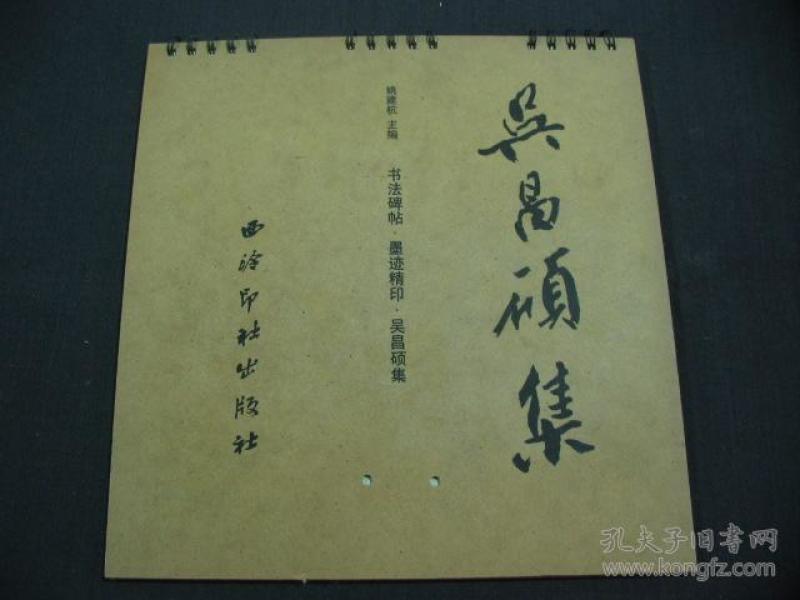 吳昌碩集
姚建杭 主编
书法碑帖·墨迹精印·吴昌硕集
西泠印社出版社
孔夫子旧书网
www.kongfz.com